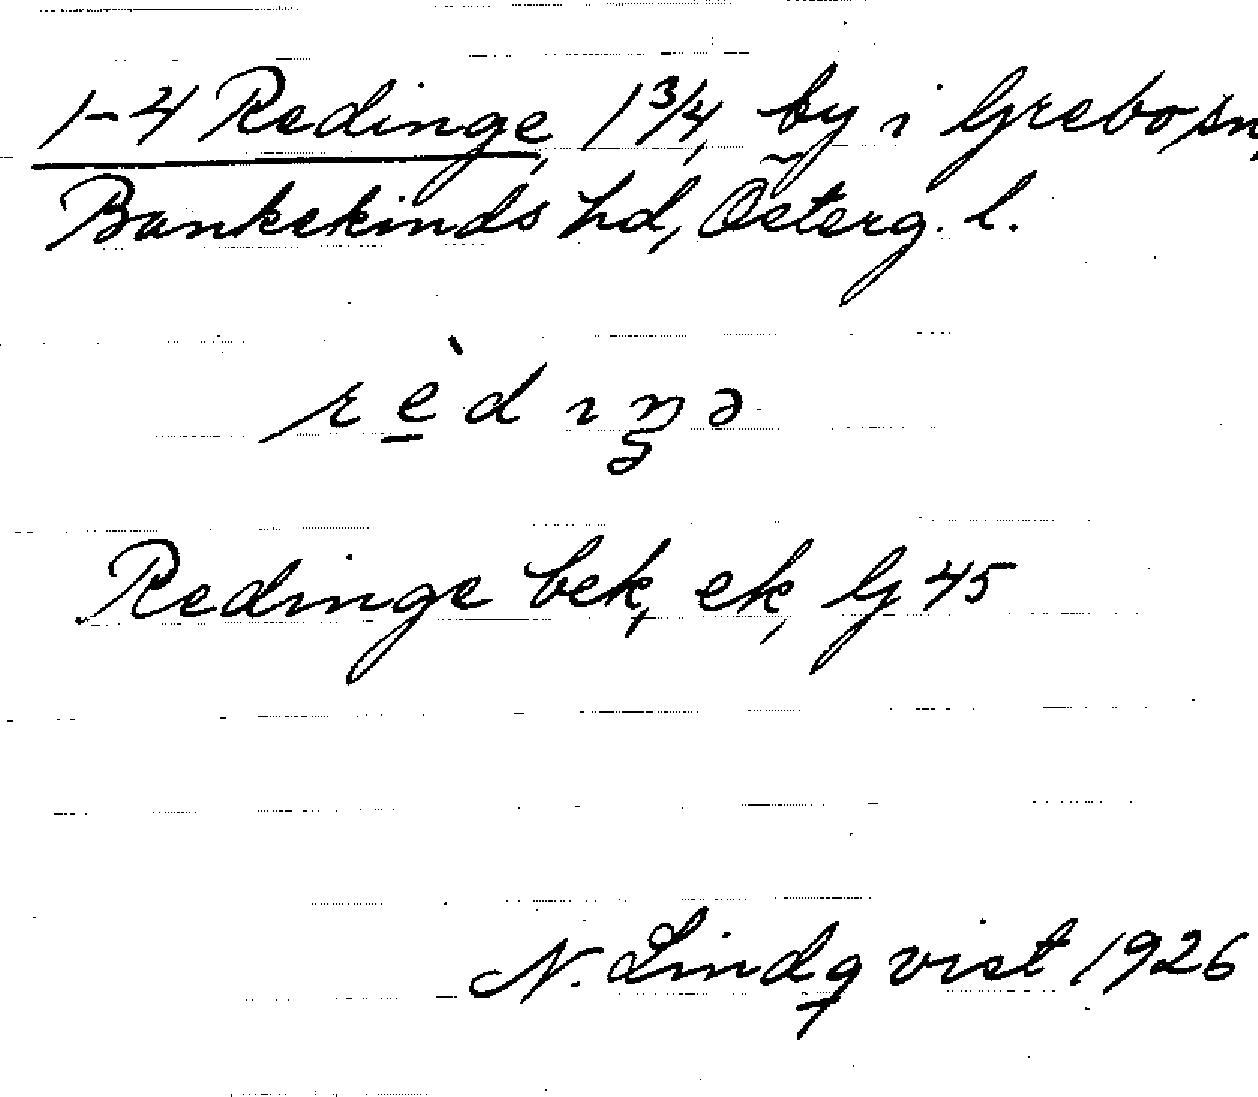 1-4 Redinge, 1 3/4, by i Grebo sn,
Bankekinds hd, Österg. l.
rèdıŋə
Redinge bek, ek, Gj 45
N. Lindqvist 1926